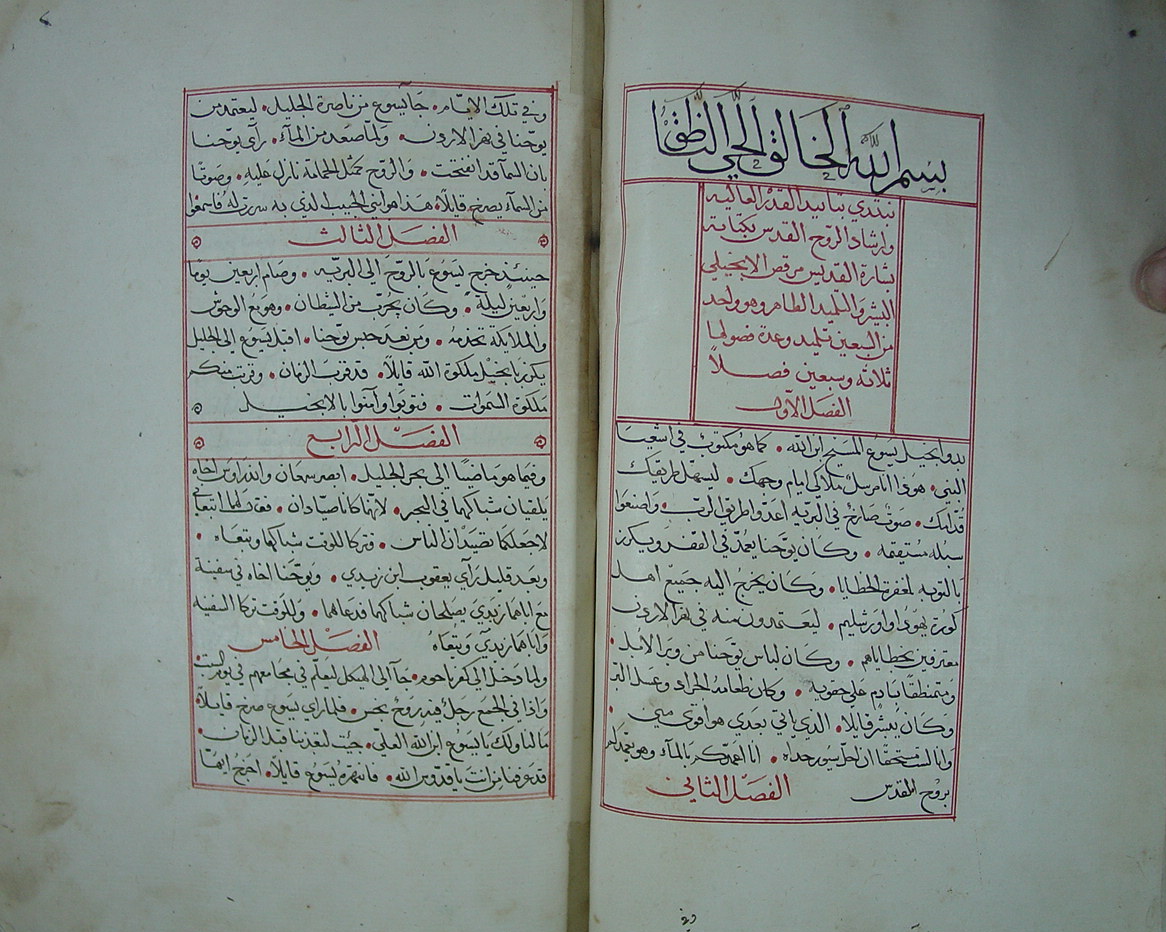 بسم الله الخالق الحي الناطق
نبتدي بتاييد القدرة العاليه
وارشاد الروح القدس بكتابة
بشارة القديس مرقص الانجيلي
البشير والتلميد الطاهر وهو واحد
من السبعين تلميد وعدة فصولها
ثلاثه وسبعين فصلاً
الفصل الاول
بدو انجيل يسوع المسيح ابن الله • كما هو مكتوب في اشعيا
النبي • هودا انا مرسل ملاكي امام وجهك • ليسهل طريقك
قدامك • صوت صارخ في البريه اعدوا طريق الرب • واصنعوا
سبله مستقيمه • وكان يوحنا يعمد في القفر ويكرز
بالتوبه لمغفرة الخطايا • وكان يخرج اليه جميع اهل
كورة يهودا واورشليم • ليعتمدون منه في نهر الاردن
معترفين بخطاياهم • وكان لباس يوحنا من وبر الابل •
ومتمنطقا بادم على حقويه • وكان طعامه الجراد وعسل البر
وكان يبشر قايلا • الدي ياتي بعدي هو اقوى مني •
وانا لست مستحقا ان احل سيور حداه • انا اعمدكم بالماء وهو يعمدكم
بروح القدس الفصل الثاني
وفي تلك الايام • جا يسوع من ناصرة الجليل • ليعتمد من
يوحنا في نهر الاردن • ولما صعد من الماء • راى يوحنا
بان السما قد انفتحت • والروح كمثل الحمامة نازل عليه • وصوتا
من السماء يصرخ قايلاً • هدا هو ابني الحبيب الدي به سررت له فاسمعوا
الفصل الثالث
حينئد خرج يسوع بالروح الى البريه • وصام اربعين يوما
واربعين ليلة • وكان يجرب من الشيطان • وهو مع الوحوش
والملايكة تخدمه • ومن بعد حبس يوحنا • اقبل يسوع الى الجليل
يكرز بانجيل ملكوة الله قايلاً • قد قرب الزمان • وقربت منكم
ملكوة السموات • فتوبوا وآمنوا بالانجيل
الفصل الرابع
وفيما هو ماضيا الى بحر الجليل • ابصر سمعان واندراوس اخاه
يلقيان شباكهما في البحر • لانهما كانا صيادان • فقال لهما اتبعاني
لاجعلكما تصيدان الناس • فتركا للوقت شباكهما وتبعاه •
وبعد قليل راي يعقوب ابن زبدي • ويوحنا اخاه في سفينة
مع اباهما زبدي يصلحان شباكهما فدعاهما • وللوقت تركا السفينه
واباهما زبدي وتبعاه الفصل الخامس
ولما دخل الى كفرناحوم • جا الى الهيكل ليعلم في مجامعهم في يوم السبت •
واذا في المجمع رجل فيه روح نجس • فلما راي يسوع صرخ قايلاً
ما لنا ولك يا يسوع ابن الله العلي • جيت لتعذبنا قبل الزمان •
قد عرفنا من انت يا قدوس الله • فانتهره يسوع قايلاً • اخرج ايها